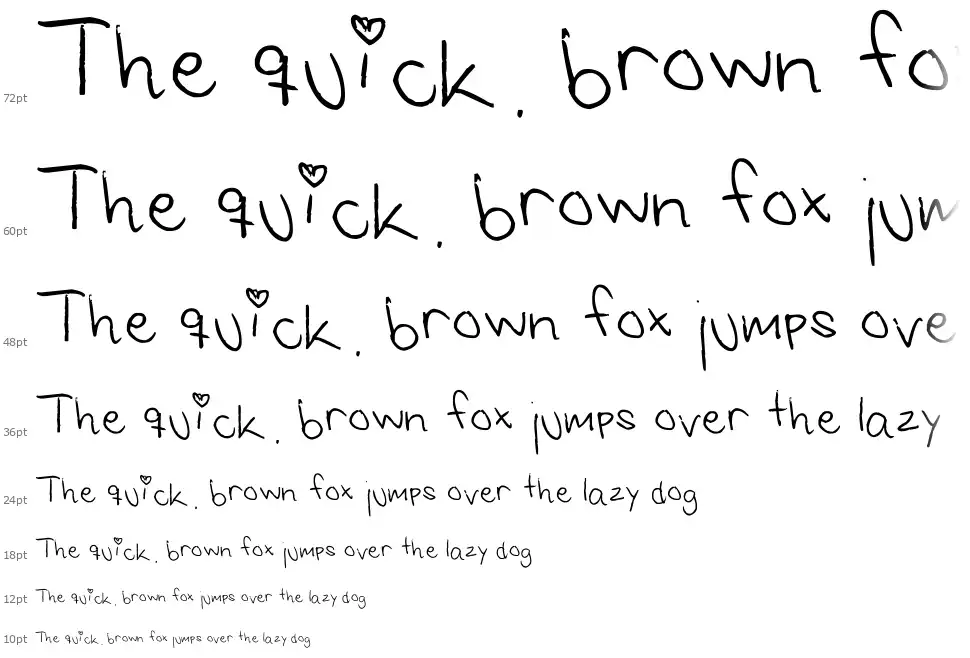 72pt The quick. brown fo
60pt The quick. brown fox jum
48pt The quick. brown fox jumps ove
36pt The quick. brown fox jumps over the lazy
24pt The quick. brown fox jumps over the lazy dog
18pt The quick. brown fox jumps over the lazy dog
12pt The quick. brown fox jumps over the lazy dog
10pt The quick. brown fox jumps over the lazy dog